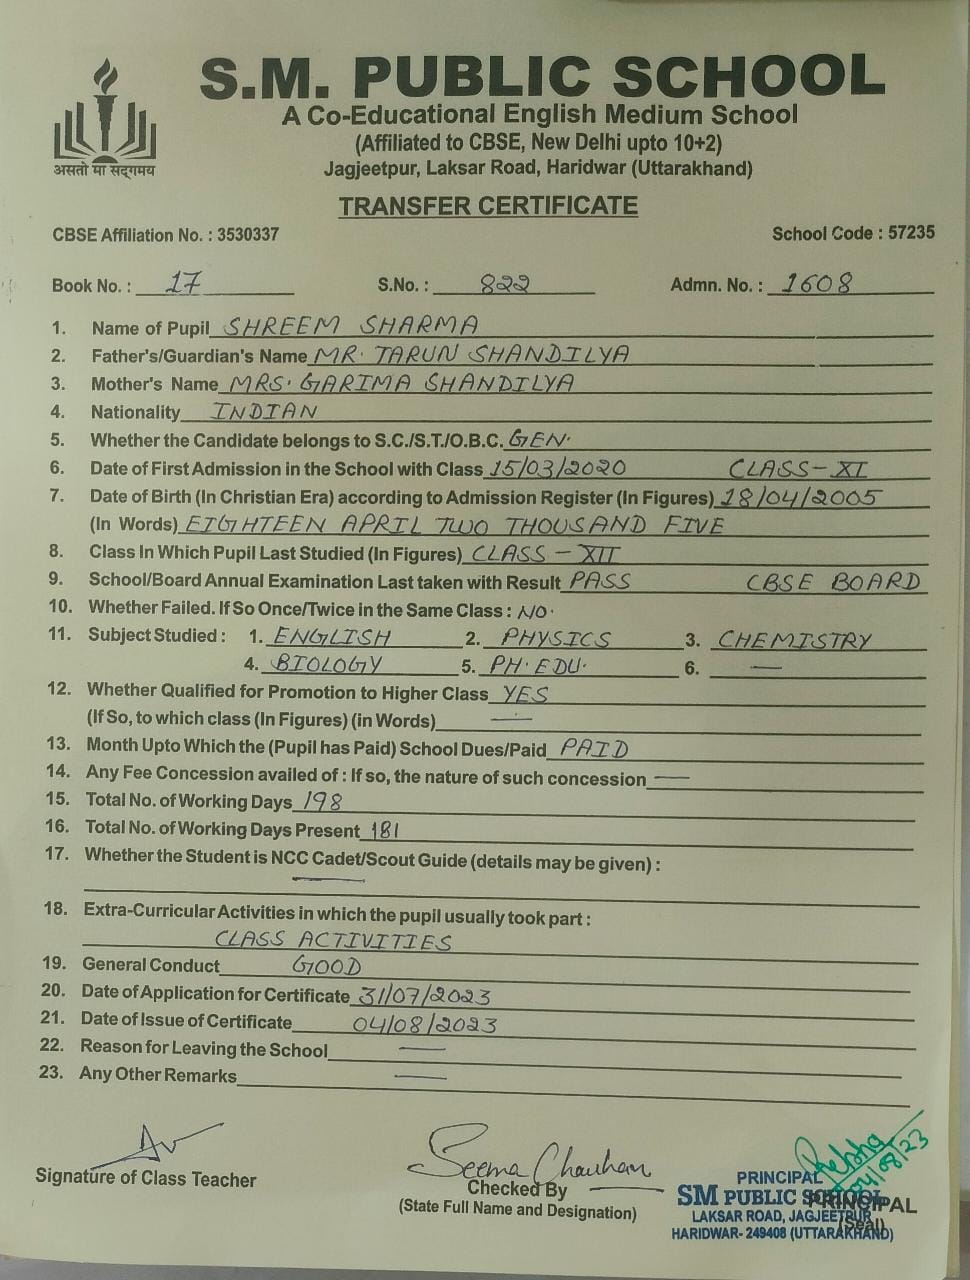 S.M. PUBLIC SCHOOL
A Co-Educational English Medium School
(Affiliated to CBSE, New Delhi upto 10+2)
असतो मा सद्गमय
Jagjeetpur, Laksar Road, Haridwar (Uttarakhand)
TRANSFER CERTIFICATE
CBSE Affiliation No. : 3530337 School Code : 57235
Book No. : 17 S.No. : 822 Admn. No. : 1608
1. Name of Pupil SHREEM SHARMA
2. Father's/Guardian's Name MR. TARUN SHANDILYA
3. Mother's Name MRS. GARIMA SHANDILYA
4. Nationality INDIAN
5. Whether the Candidate belongs to S.C./S.T./O.B.C. GEN.
6. Date of First Admission in the School with Class 15/03/2020 CLASS-XI
7. Date of Birth (In Christian Era) according to Admission Register (In Figures) 18/04/2005
(In Words) EIGHTEEN APRIL TWO THOUSAND FIVE
8. Class In Which Pupil Last Studied (In Figures) CLASS - XII
9. School/Board Annual Examination Last taken with Result PASS CBSE BOARD
10. Whether Failed. If So Once/Twice in the Same Class : NO.
11. Subject Studied : 1. ENGLISH 2. PHYSICS 3. CHEMISTRY
4. BIOLOGY 5. PH. EDU. 6. —
12. Whether Qualified for Promotion to Higher Class YES
(If So, to which class (In Figures) (in Words) —
13. Month Upto Which the (Pupil has Paid) School Dues/Paid PAID
14. Any Fee Concession availed of : If so, the nature of such concession —
15. Total No. of Working Days 198
16. Total No. of Working Days Present 181
17. Whether the Student is NCC Cadet/Scout Guide (details may be given) :
—
18. Extra-Curricular Activities in which the pupil usually took part :
CLASS ACTIVITIES
19. General Conduct GOOD
20. Date of Application for Certificate 31/07/2023
21. Date of Issue of Certificate 04/08/2023
22. Reason for Leaving the School —
23. Any Other Remarks —
Seema Chauhan
04/08/23
Signature of Class Teacher
Checked By
(State Full Name and Designation)
PRINCIPAL
SM PUBLIC SCHOOL
PRINCIPAL
LAKSAR ROAD, JAGJEETPUR
(Seal)
HARIDWAR- 249408 (UTTARAKHAND)